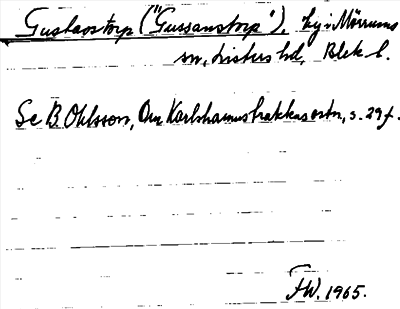 Gustavstorp ("Gussanstorp"), by i Mörrums
sn, Listers hd, Blek. l.
Se B. Ohlsson, Om Karlshamnstrakten, s. 29 f.
FW. 1965.